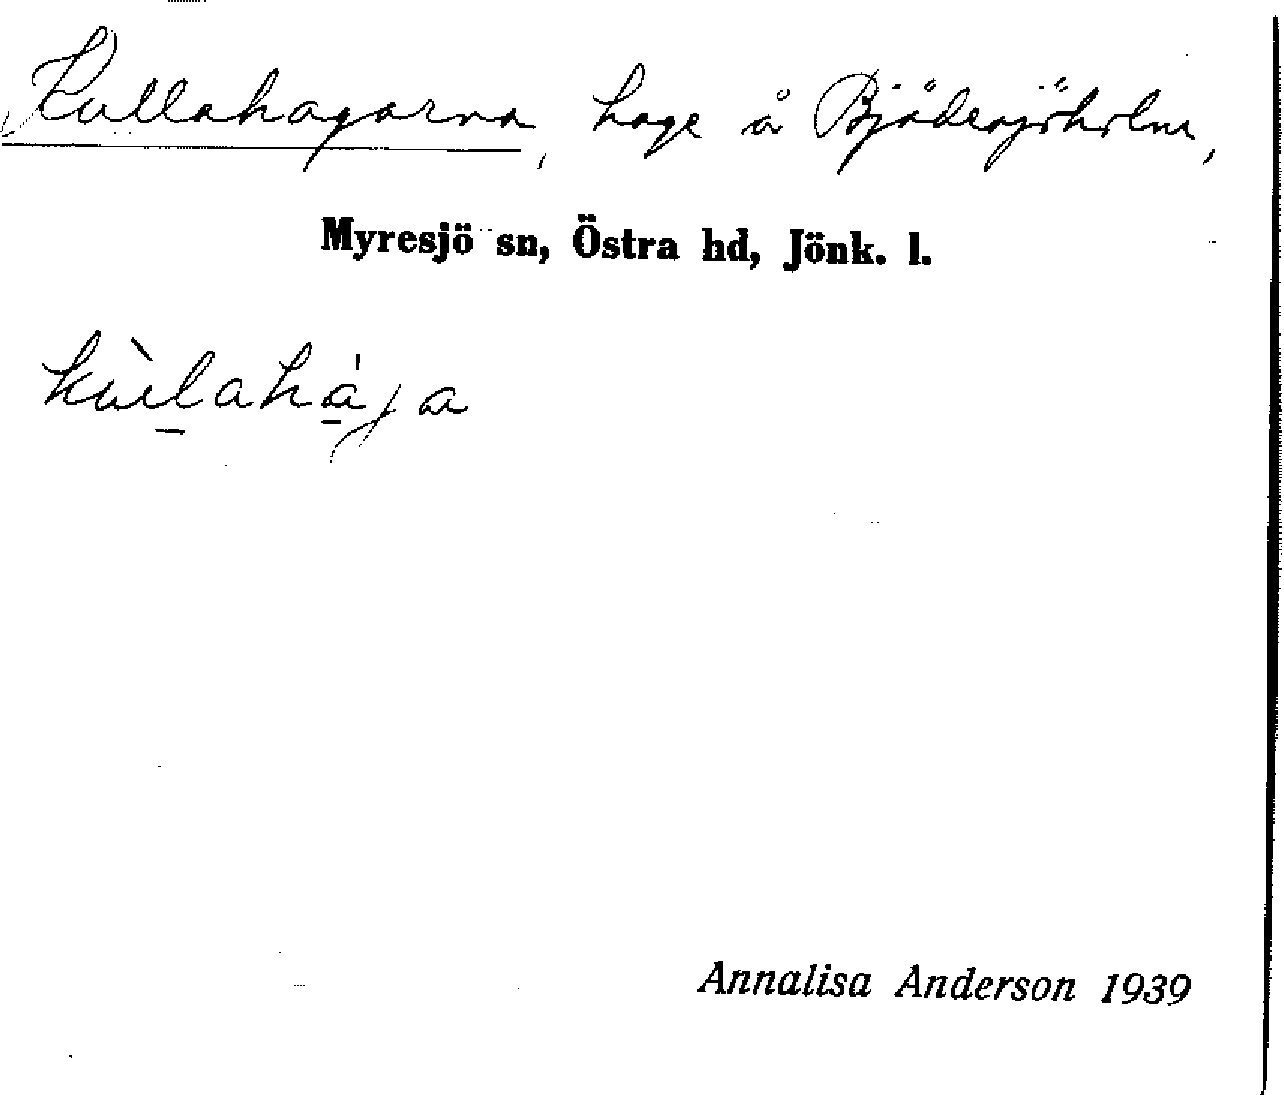 Kullahagarna, hage å Bjädesjöholm,
Myresjö sn, Östra hd, Jönk. l.
kùlahája
Annalisa Anderson 1939